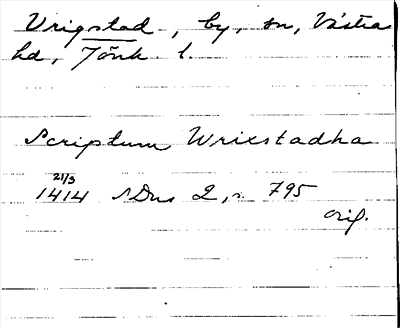 Vrigstad, by, sn, Västra
hd, Jönk l.
Scriptum Wrixstadha
21/3
1414 SDns 2, s. 795
orig.